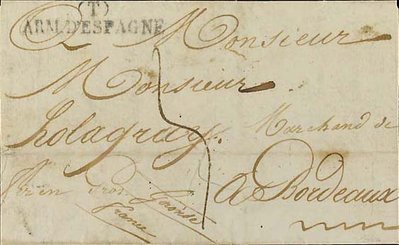 (T)
ARM. D'ESPAGNE
A Monsieur
Monsieur
Lolagray. Marchand de
A Bordeaux
france